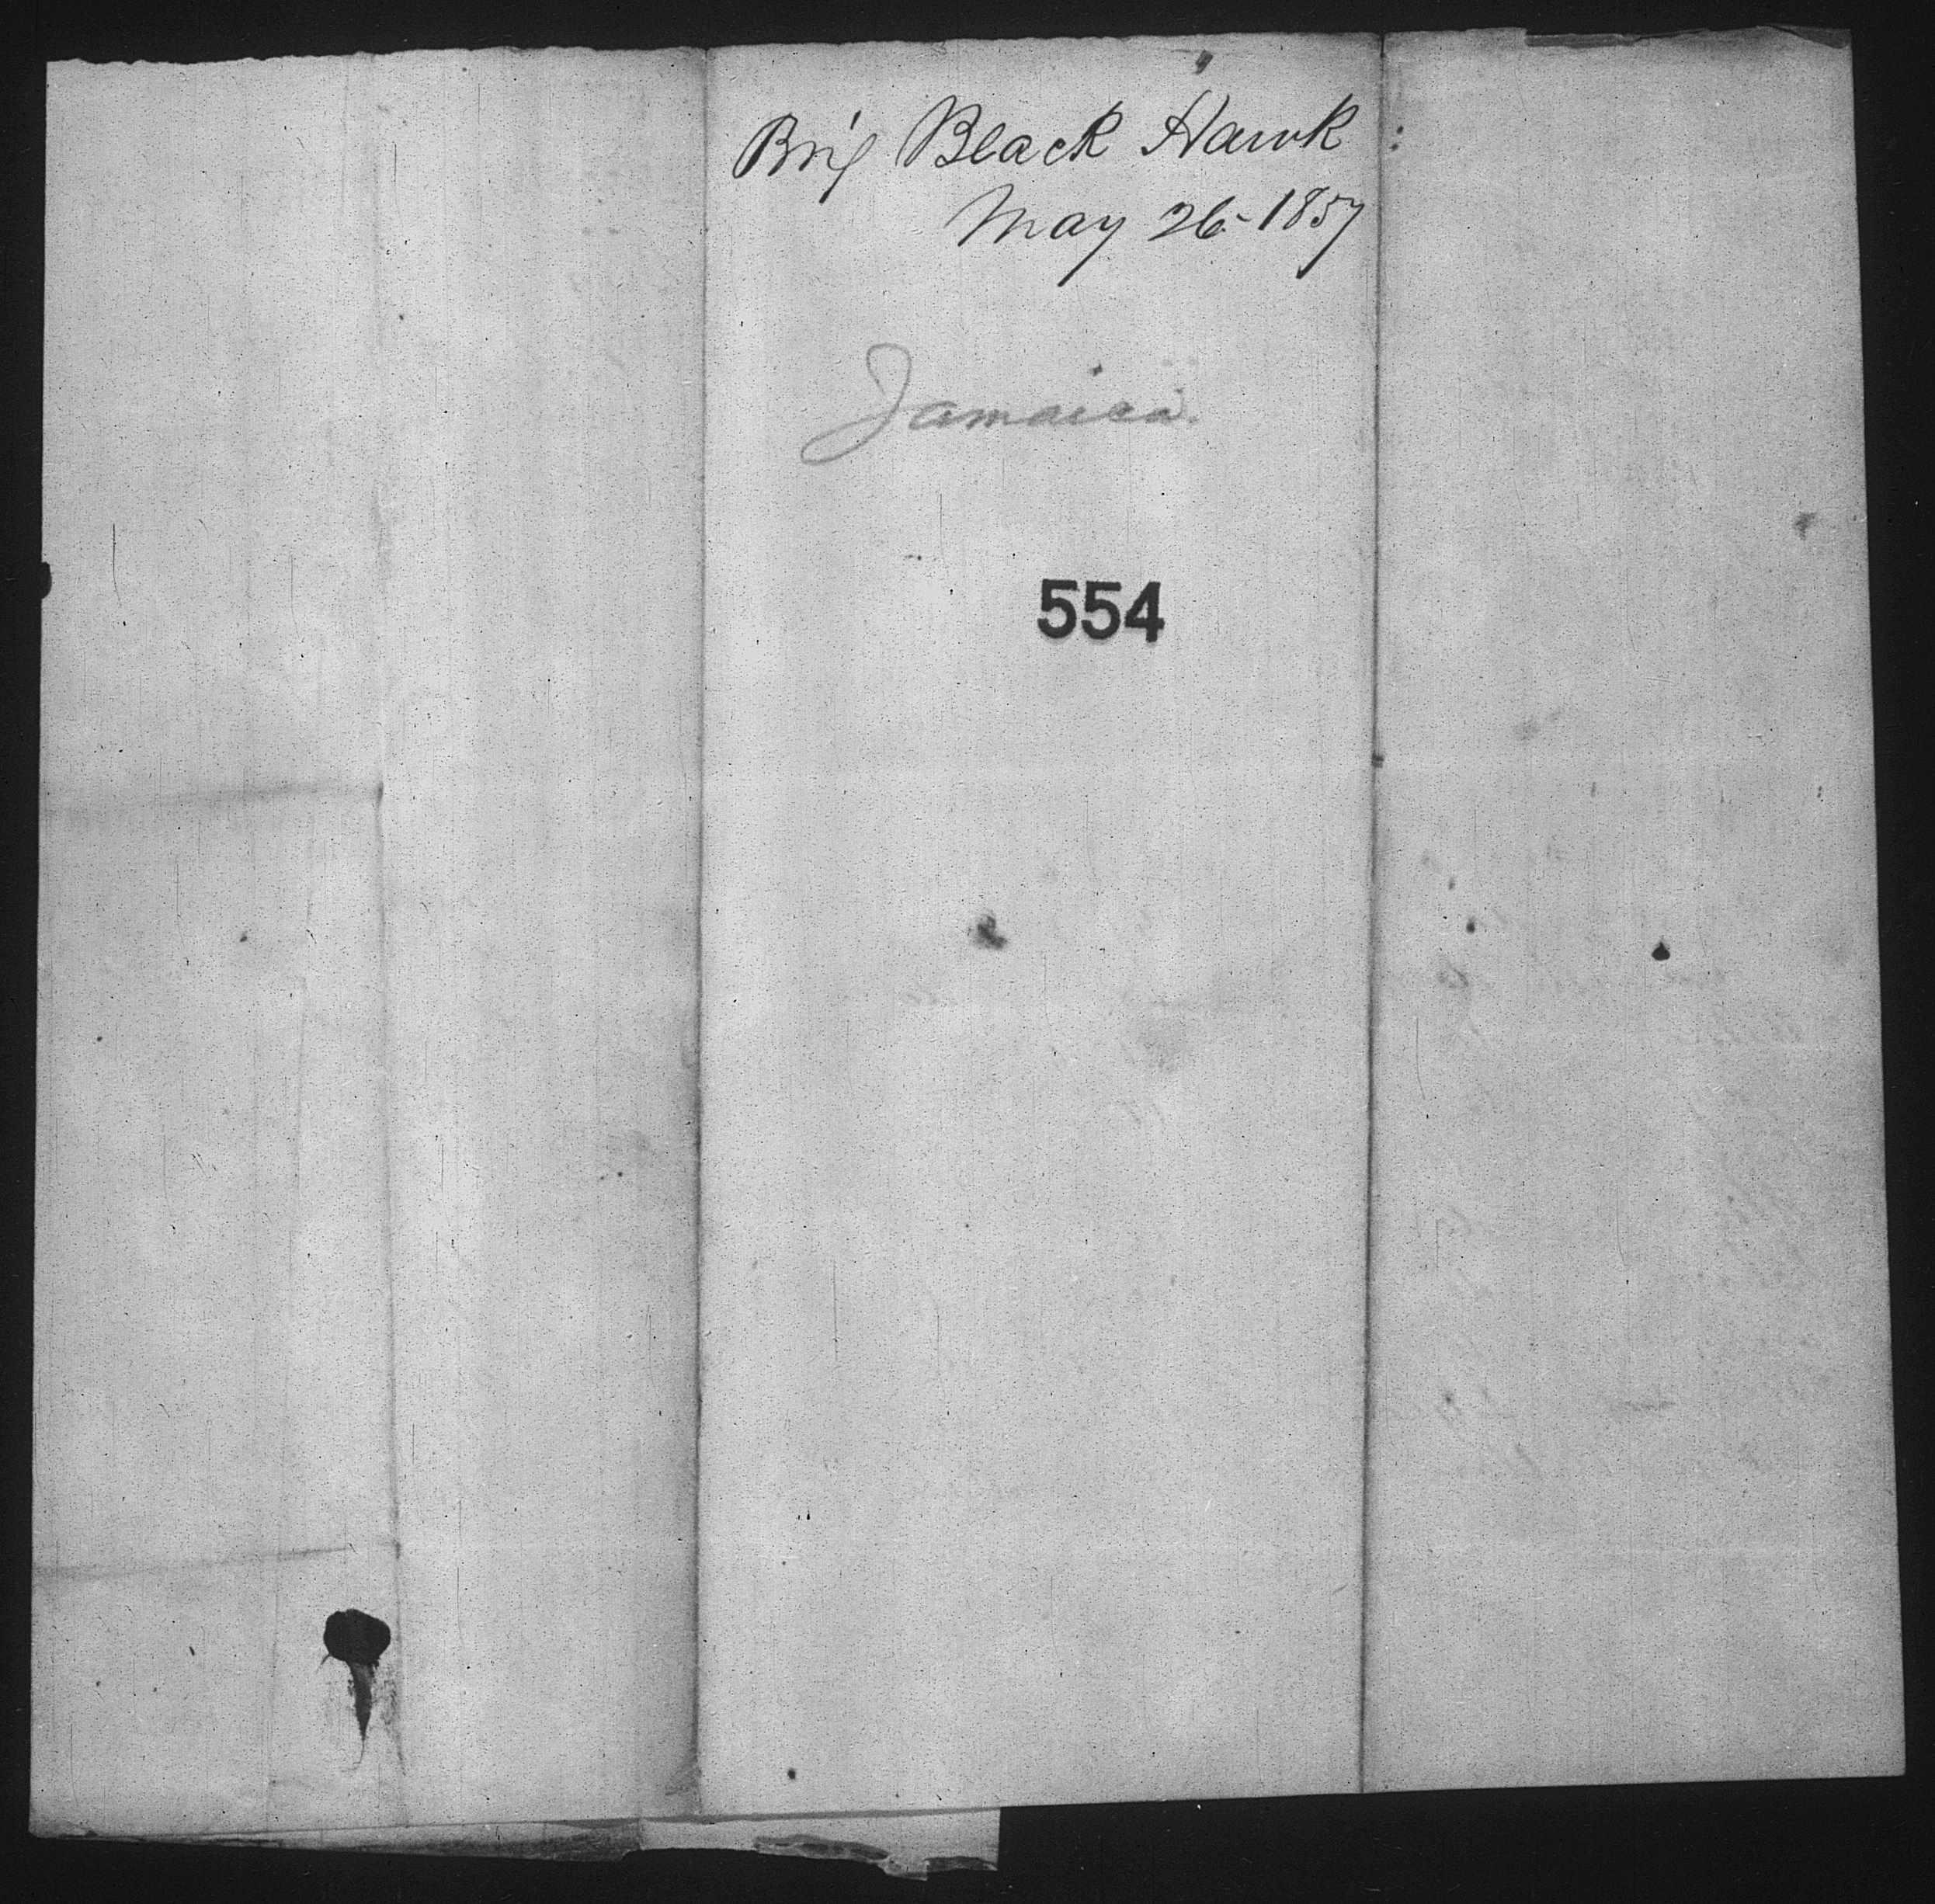 Brig Black Hawk :
May 26 - 1857
Jamaica.
554